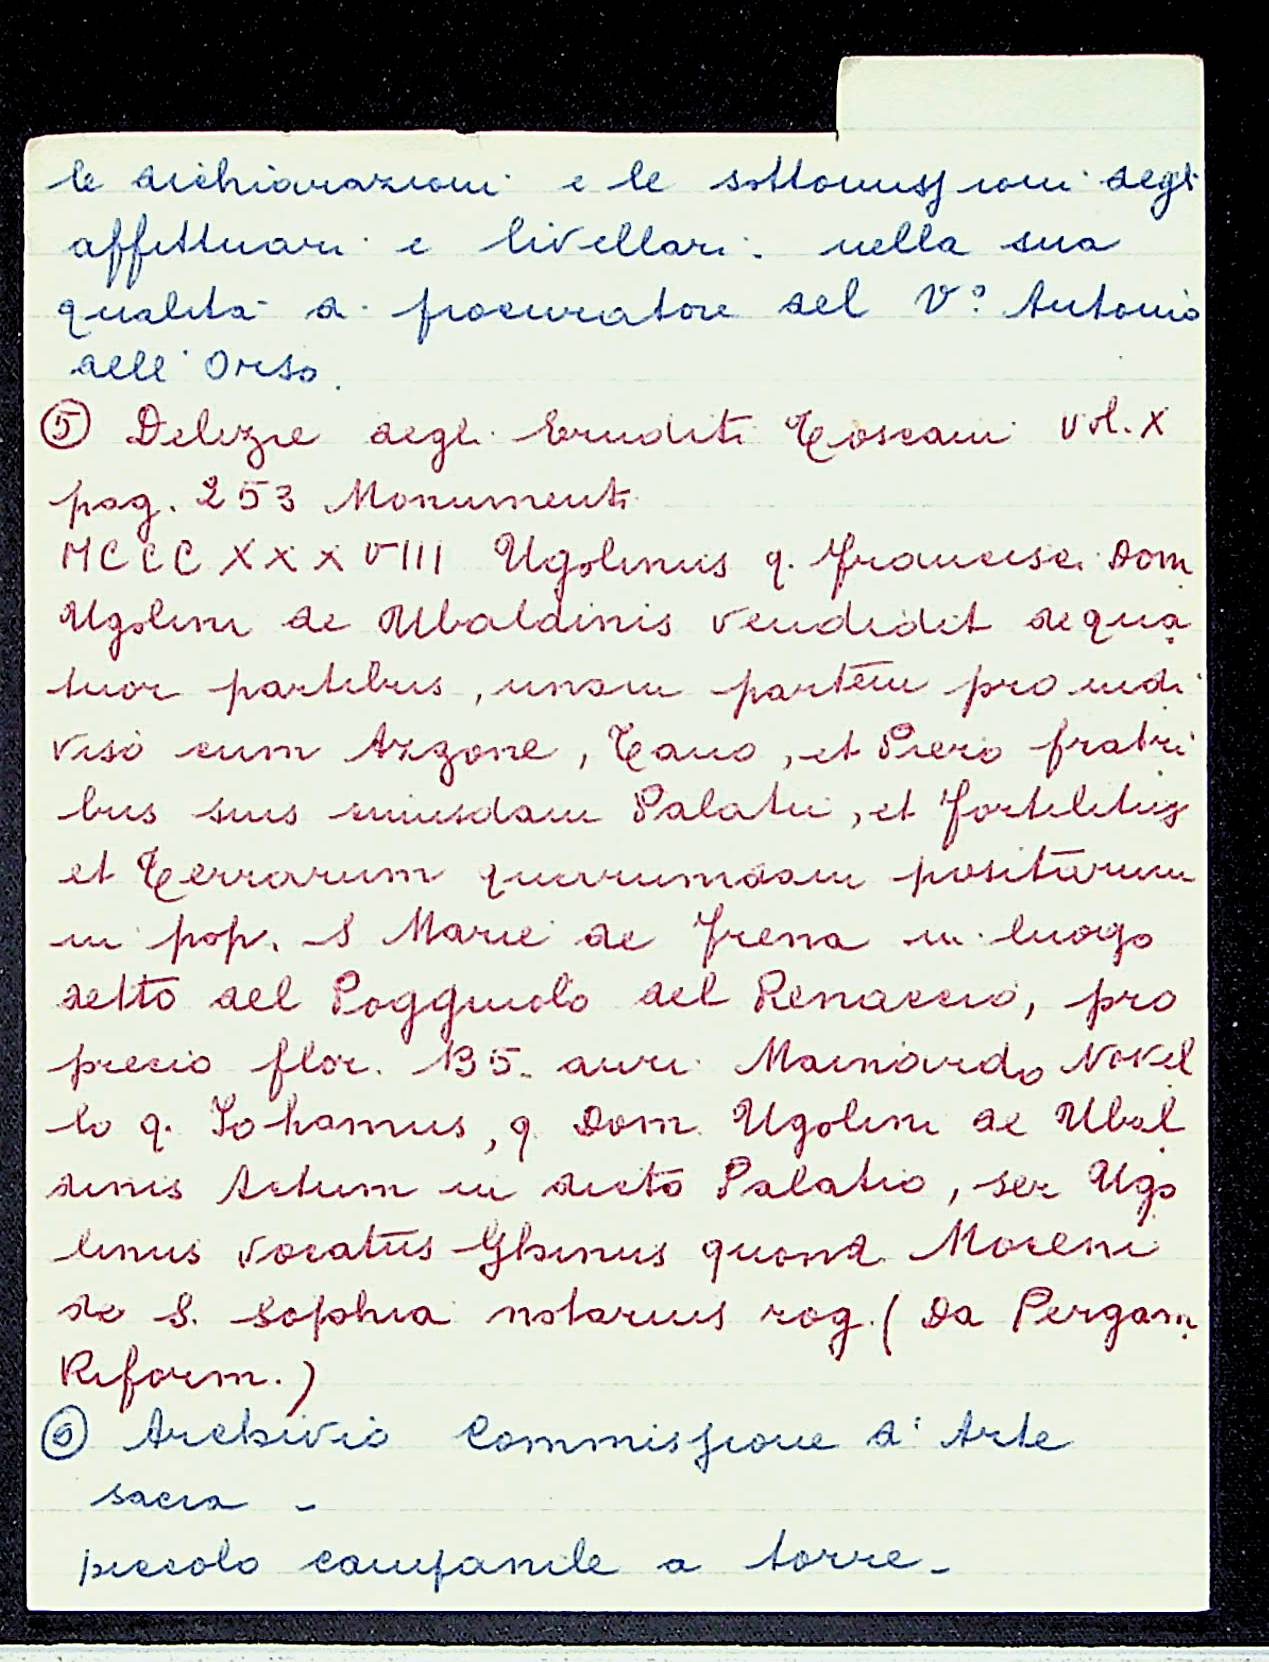 le dichiarazioni e le sottomissioni degli
affittuari e livellari nella sua
qualità di procuratore del V.º Antonio
dell'Orso.
⑤ Delizie degli Eruditi Toscani vol. X
pag. 253 Monumenti
MCCCXXXVIII Ugolinus q. Francisci Dom
Ugolini de Ubaldinis vendidit de qua
tuor partibus, unam partem pro indi
viso cum Azzone, Tano, et Piero fratri
bus suis cuiusdam Palatii, et Fortilitiis
et Terrarum quarumdam positarum
in pop. S Marie de Frena in luogo
detto del Poggiuolo del Renaccio, pro
precio flor. 135. auri Mainardo Novel
lo q. Iohannis, q. Dom. Ugolini de Ubal
dinis Actum in dicto Palatio, ser Ugo
linus vocatus Ghinus quond. Moceni
de S. Sophia notarius rog. (Da Pergam.
Riform.)
⑥ Archivio Commissione d'Arte
sacra -
piccolo campanile a torre -